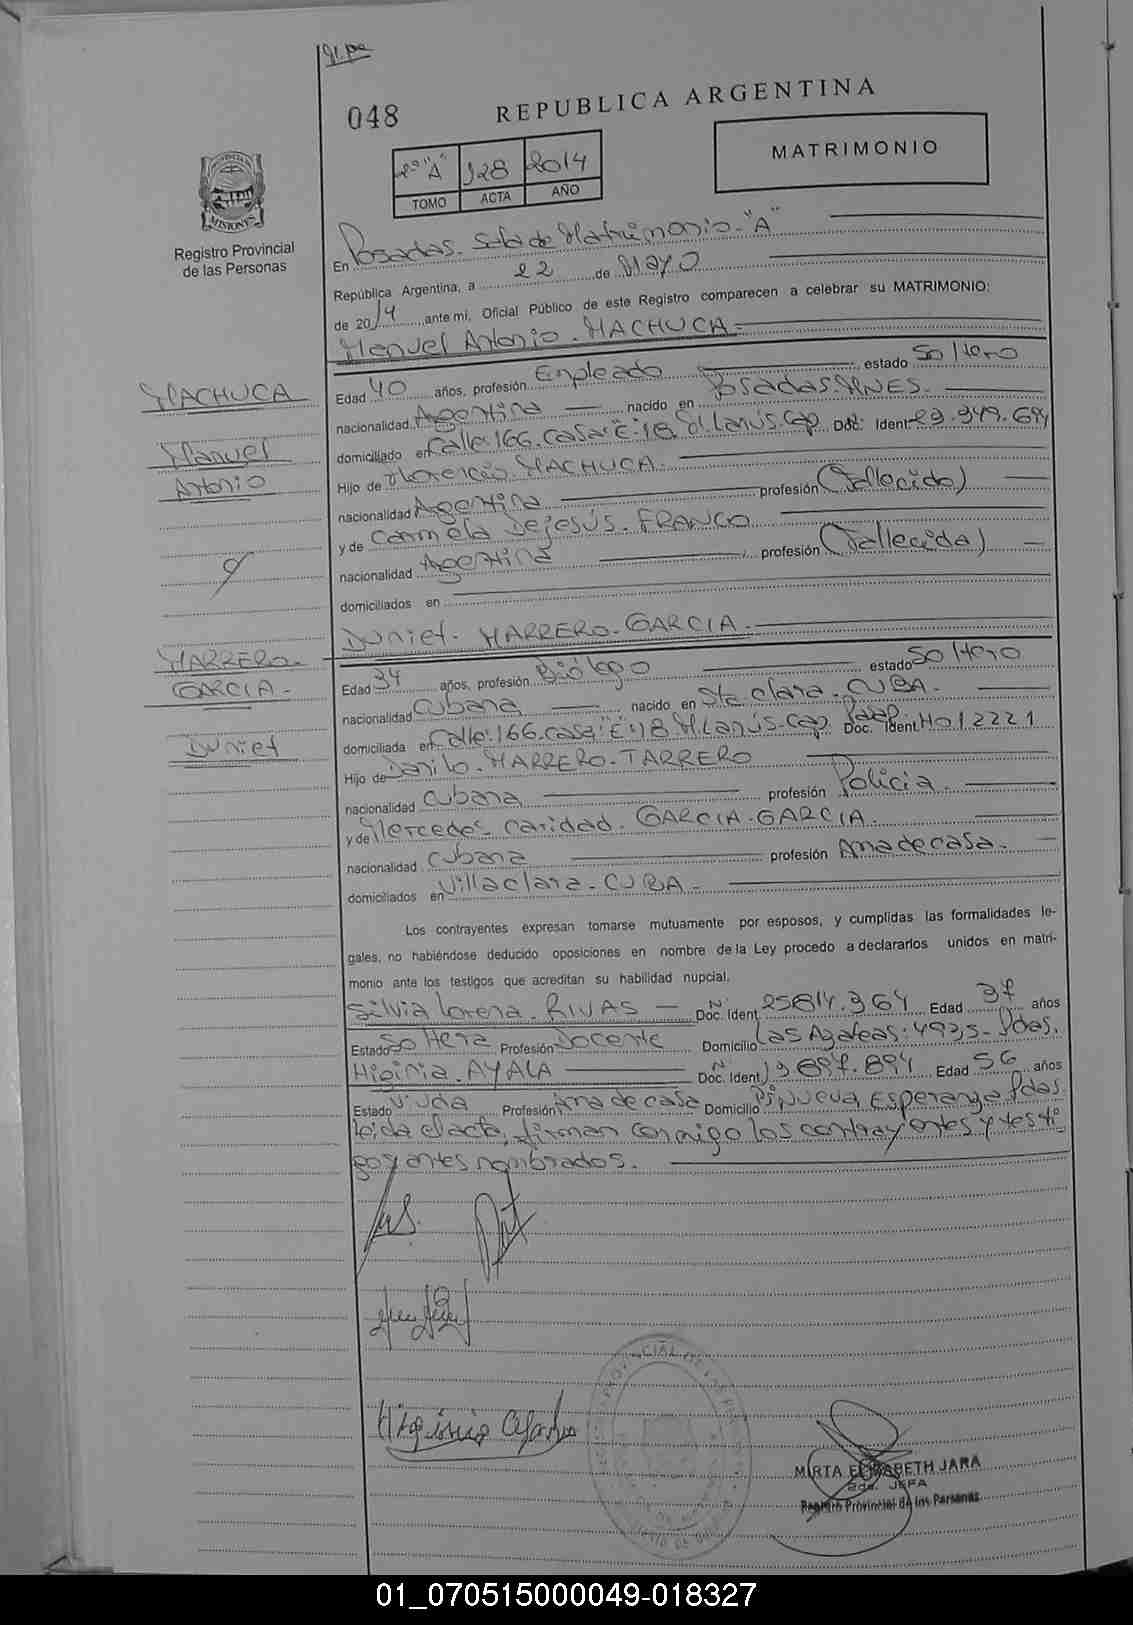 048
REPUBLICA ARGENTINA
MATRIMONIO
2º "A" 128 2014
TOMO ACTA AÑO
PROVINCIA DE
MISIONES
Registro Provincial
de las Personas
En Posadas. Sala de Matrimonio-"A"
República Argentina, a 22 de Mayo
de 2014 ante mi, Oficial Público de este Registro comparecen a celebrar su MATRIMONIO:
Manuel Antonio. MACHUCA
MACHUCA
Manuel
Antonio
Edad 40 años, profesión Empleado estado Soltero
nacionalidad Argentina nacido en Posadas. MNES.
domiciliado en Calle:166. Casa "E":18 Vº. Lanús. Cap Doc. Ident 23.949.644
Hijo de Florencio MACHUCA.
nacionalidad Argentina profesión (Fallecido)
y de Carmela Dejesús. FRANCO
nacionalidad Argentina profesión (Fallecida)
domiciliados en
Duniet. MARRERO-GARCIA.
MARRERO-
GARCIA-
Duniet
Edad 34 años, profesión Biólogo estado Soltero
nacionalidad Cubana nacido en Sta. Clara-CUBA.
domiciliada en Calle:166. Casa "E":18 Lanús-Cap Doc. Ident H012221
Hijo de Danilo-MARRERO-TARRERO
nacionalidad Cubana profesión Policia.
y de Mercedes Caridad. GARCIA-GARCIA.
nacionalidad Cubana profesión Ama de casa.
domiciliados en Villa Clara-CUBA-
Los contrayentes expresan tomarse mutuamente por esposos, y cumplidas las formalidades le-
gales, no habiéndose deducido oposiciones en nombre de la Ley procedo a declararlos unidos en matri-
monio ante los testigos que acreditan su habilidad nupcial.
Silvia Lorena. RIVAS Doc. Ident. 25814.364 Edad 37 años
Estado Soltera Profesión Docente Domicilio Las Azaleas:4925-Pdas.
Higinia. AYALA Doc. Ident. 13897.894 Edad 56 años
Estado Viuda Profesión Ama de casa Domicilio Nueva Esperanza Pdas
Leida el acta, firman conmigo los contrayentes y testi
gos antes nombrados.
Higinia Ayala
MIRTA ELIZABETH JARA
2da. JEFA
Registro Provincial de las Personas
01_070515000049-018327